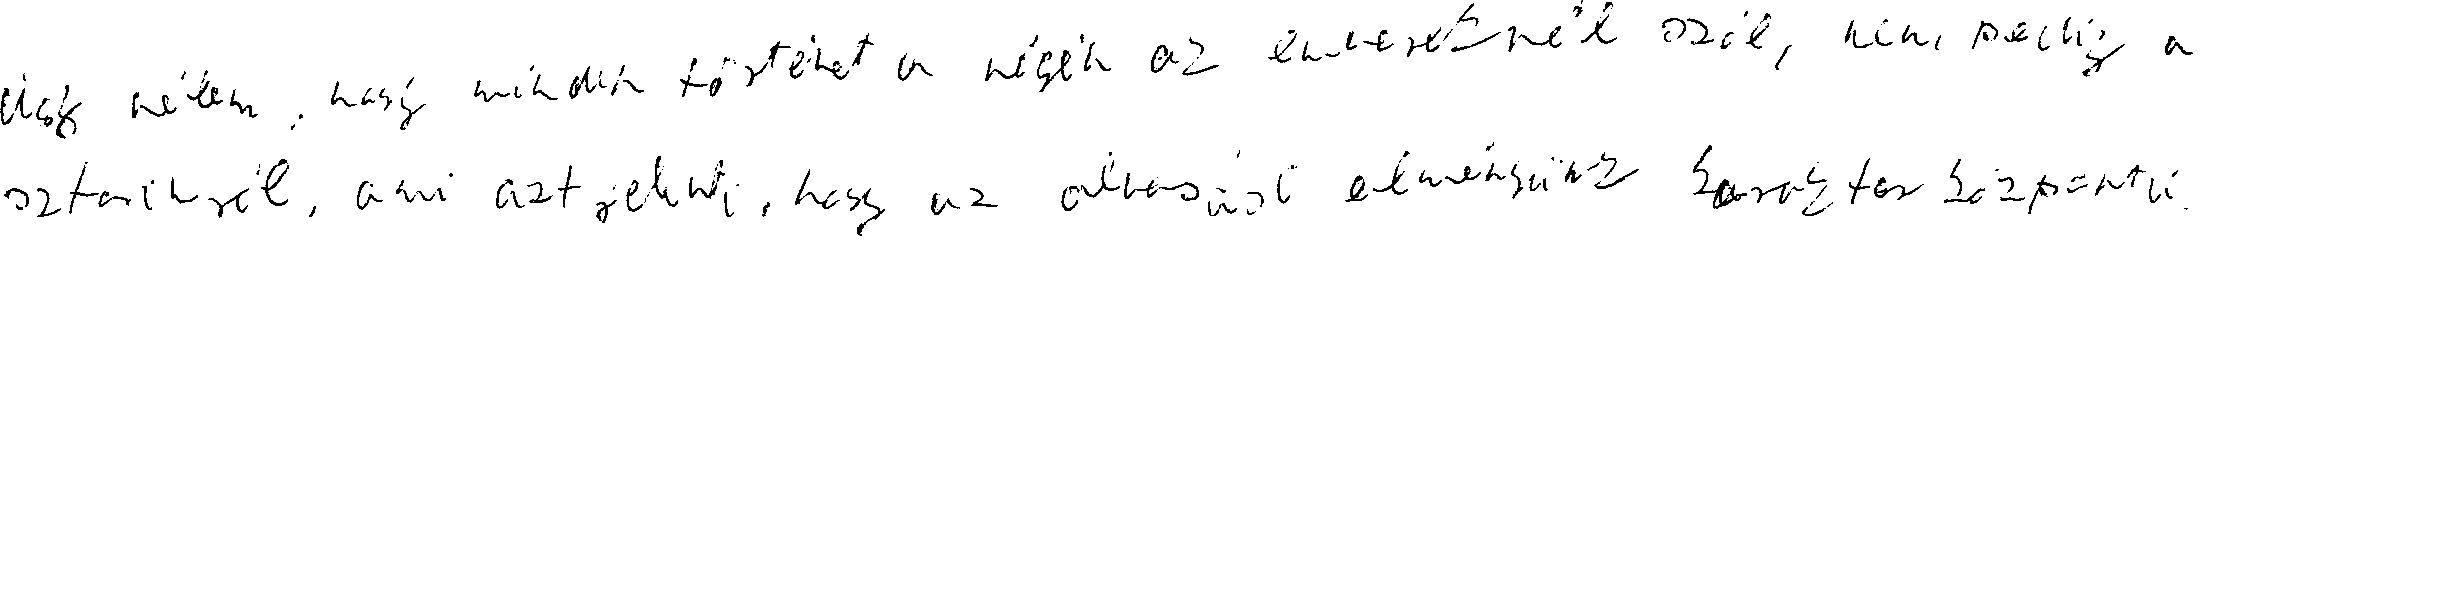 Úgy vélem, hogy minden történet a végén az emberekről szól, nem pedig a
sztorikról, ami azt jelenti, hogy az olvasási élményünk karakterközpontú.